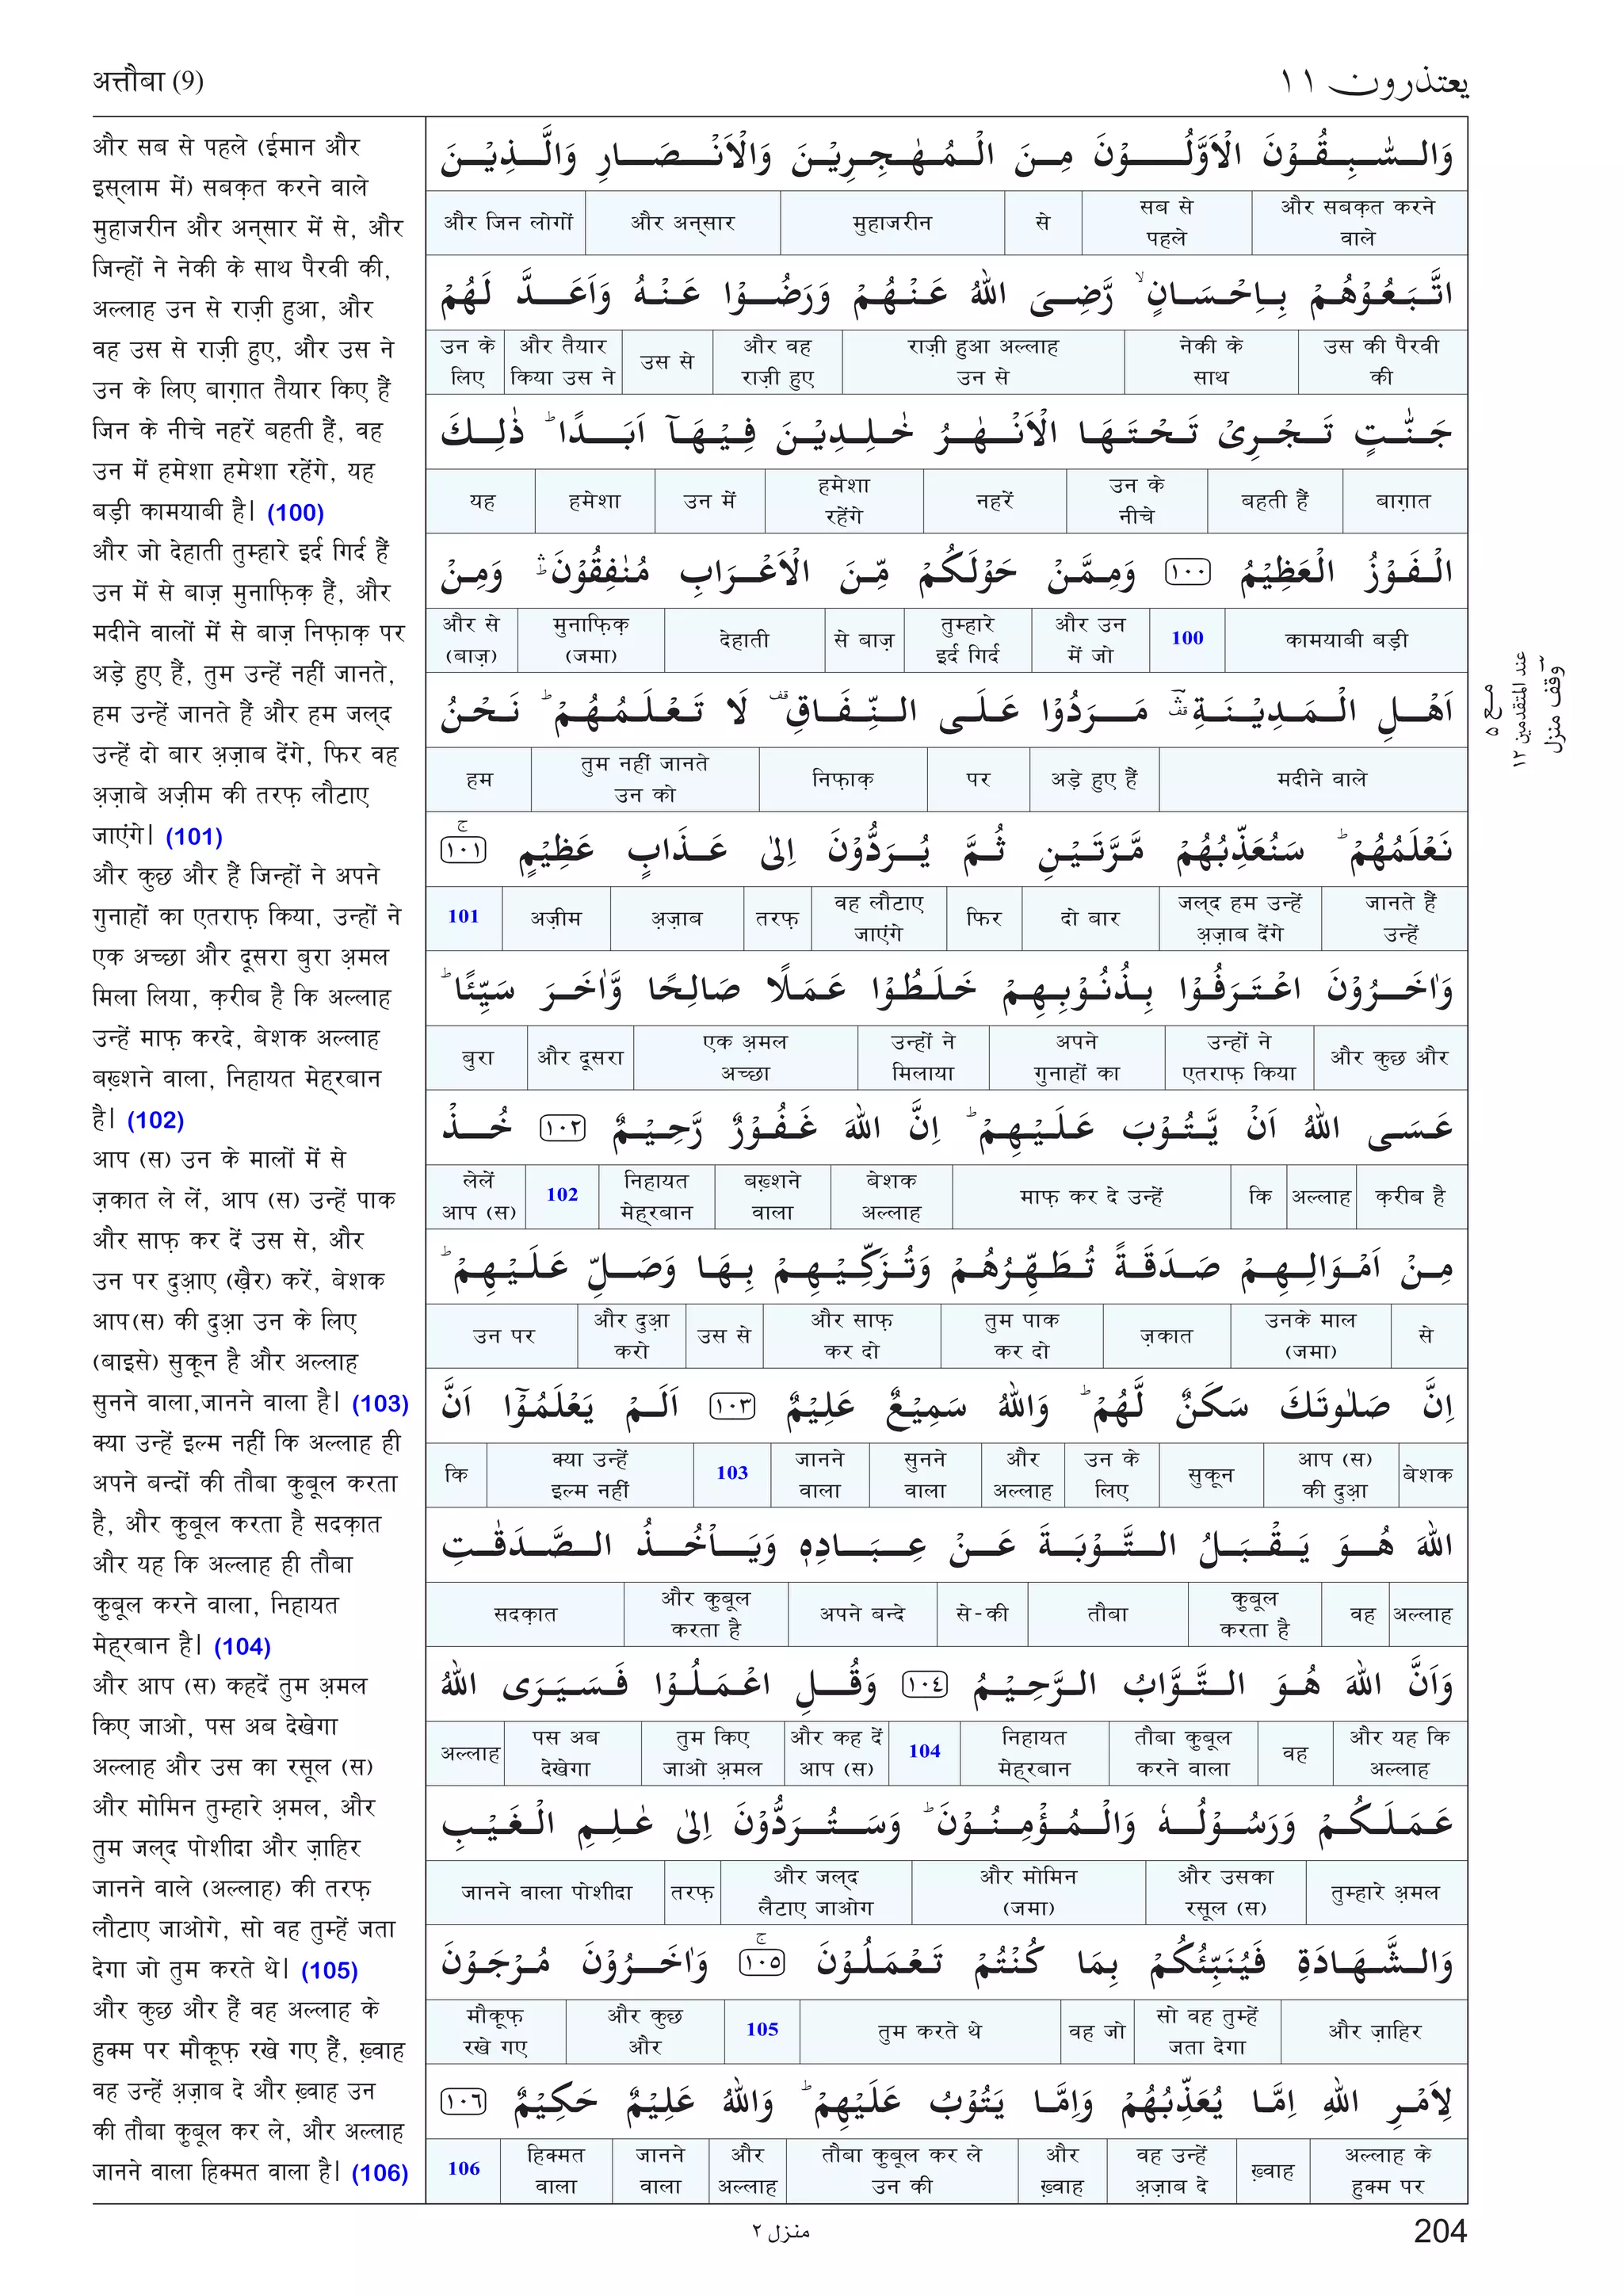 अत्तौबा (9)
يعتذرون ١١
और सब से पहले (ईमान और
इस्लाम में) सबक़त करने वाले
मुहाजरीन और अन्सार में से, और
जिन्हों ने नेकी के साथ पैरवी की,
अल्लाह उन से राज़ी हुआ, और
वह उस से राज़ी हुए, और उस ने
उन के लिए बाग़ात तैयार किए हैं
जिन के नीचे नहरें बहती हैं, वह
उन में हमेशा हमेशा रहेंगे, यह
बड़ी कामयाबी है| (100)
और जो देहाती तुम्हारे इर्द गिर्द हैं
उन में से बाज़ मुनाफ़िक़ हैं, और
मदीने वालों में से बाज़ निफ़ाक़ पर
अड़े हुए हैं, तुम उन्हें नहीं जानते,
हम उन्हें जानते हैं और हम जल्द
उन्हें दो बार अ़ज़ाब देंगे, फिर वह
अ़ज़ाबे अज़ीम की तरफ़ लौटाए
जाएंगे| (101)
और कुछ और हैं जिन्हों ने अपने
गुनाहों का एतराफ़ किया, उन्हों ने
एक अच्छा और दूसरा बुरा अ़मल
मिला लिया, क़रीब है कि अल्लाह
उन्हें माफ़ करदे, बेशक अल्लाह
बख़्शने वाला, निहायत मेह्रबान
है| (102)
आप (स) उन के मालों में से
ज़कात ले लें, आप (स) उन्हें पाक
और साफ़ कर दें उस से, और
उन पर दुआ़ए (ख़ैर) करें, बेशक
आप(स) की दुआ़ उन के लिए
(बाइसे) सुकून है और अल्लाह
सुनने वाला,जानने वाला है| (103)
क्या उन्हें इल्म नहीं कि अल्लाह ही
अपने बन्दों की तौबा क़ुबूल करता
है, और क़ुबूल करता है सदक़ात
और यह कि अल्लाह ही तौबा
क़ुबूल करने वाला, निहायत
मेह्रबान है| (104)
और आप (स) कहदें तुम अ़मल
किए जाओ, पस अब देखेगा
अल्लाह और उस का रसूल (स)
और मोमिन तुम्हारे अ़मल, और
तुम जल्द पोशीदा और ज़ाहिर
जानने वाले (अल्लाह) की तरफ़
लौटाए जाओगे, सो वह तुम्हें जता
देगा जो तुम करते थे| (105)
और कुछ और हैं वह अल्लाह के
हुक्म पर मौक़ूफ़ रखे गए हैं, ख़्वाह
वह उन्हें अ़ज़ाब दे और ख़्वाह उन
की तौबा क़ुबूल कर ले, और अल्लाह
जानने वाला हिक्मत वाला है| (106)
وَالسّٰبِقُوْنَ الْاَوَّلُوْنَ مِنَ الْمُهٰجِرِيْنَ وَالْاَنْصَارِ وَالَّذِيْنَ
और सबक़त करने वाले | सब से पहले | से | मुहाजरीन | और अन्सार | और जिन लोगों
اتَّبَعُوْهُمْ بِاِحْسَانٍ ۙ رَّضِىَ اللّٰهُ عَنْهُمْ وَرَضُوْا عَنْهُ وَاَعَدَّ لَهُمْ
उस की पैरवी की | नेकी के साथ | राज़ी हुआ अल्लाह उन से | और वह राज़ी हुए | उस से | और तैयार किया उस ने | उन के लिए
جَنّٰتٍ تَجْرِىْ تَحْتَهَا الْاَنْهٰرُ خٰلِدِيْنَ فِيْهَآ اَبَدًا ؕ ذٰلِكَ
बाग़ात | बहती हैं | उन के नीचे | नहरें | हमेशा रहेंगे | उन में | हमेशा | यह
الْفَوْزُ الْعَظِيْمُ ١٠٠ وَمِمَّنْ حَوْلَكُمْ مِّنَ الْاَعْرَابِ مُنٰفِقُوْنَ ۛؕ وَمِنْ
कामयाबी बड़ी | 100 | और उन में जो | तुम्हारे इर्द गिर्द | से बाज़ | देहाती | मुनाफ़िक़ (जमा) | और से (बाज़)
اَهْلِ الْمَدِيْنَةِ ۛؔ مَرَدُوْا عَلَى النِّفَاقِ ۫ لَا تَعْلَمُهُمْ ؕ نَحْنُ
मदीने वाले | अड़े हुए हैं | पर | निफ़ाक़ | तुम नहीं जानते उन को | हम
نَعْلَمُهُمْ ؕ سَنُعَذِّبُهُمْ مَّرَّتَيْنِ ثُمَّ يُرَدُّوْنَ اِلٰى عَذَابٍ عَظِيْمٍ ١٠١ ۚ
जानते हैं उन्हें | जल्द हम उन्हें अ़ज़ाब देंगे | दो बार | फिर | वह लौटाए जाएंगे | तरफ़ | अ़ज़ाब | अज़ीम | 101
وَاٰخَرُوْنَ اعْتَرَفُوْا بِذُنُوْبِهِمْ خَلَطُوْا عَمَلًا صَالِحًا وَّاٰخَرَ سَيِّئًا ؕ
और कुछ और | उन्हों ने एतराफ़ किया | अपने गुनाहों का | उन्हों ने मिलाया | एक अ़मल अच्छा | और दूसरा | बुरा
عَسَى اللّٰهُ اَنْ يَّتُوْبَ عَلَيْهِمْ ؕ اِنَّ اللّٰهَ غَفُوْرٌ رَّحِيْمٌ ١٠٢ خُذْ
क़रीब है | अल्लाह | कि | माफ़ कर दे उन्हें | बेशक अल्लाह | बख़्शने वाला | निहायत मेह्रबान | 102 | लेलें आप (स)
مِنْ اَمْوَالِهِمْ صَدَقَةً تُطَهِّرُهُمْ وَتُزَكِّيْهِمْ بِهَا وَصَلِّ عَلَيْهِمْ ؕ
से | उनके माल (जमा) | ज़कात | तुम पाक कर दो | और साफ़ कर दो | उस से | और दुआ़ करो | उन पर
اِنَّ صَلٰوتَكَ سَكَنٌ لَّهُمْ ؕ وَاللّٰهُ سَمِيْعٌ عَلِيْمٌ ١٠٣ اَلَمْ يَعْلَمُوْٓا اَنَّ
बेशक | आप (स) की दुआ़ | सुकून | उन के लिए | और अल्लाह | सुनने वाला | जानने वाला | 103 | क्या उन्हें इल्म नहीं | कि
اللّٰهَ هُوَ يَقْبَلُ التَّوْبَةَ عَنْ عِبَادِهٖ وَيَاْخُذُ الصَّدَقٰتِ
अल्लाह | वह | क़ुबूल करता है | तौबा | से-की | अपने बन्दे | और क़ुबूल करता है | सदक़ात
وَاَنَّ اللّٰهَ هُوَ التَّوَّابُ الرَّحِيْمُ ١٠٤ وَقُلِ اعْمَلُوْا فَسَيَرَى اللّٰهُ
और यह कि अल्लाह | वह | तौबा क़ुबूल करने वाला | निहायत मेह्रबान | 104 | और कह दें आप (स) | तुम किए जाओ अ़मल | पस अब देखेगा | अल्लाह
عَمَلَكُمْ وَرَسُوْلُهٗ وَالْمُؤْمِنُوْنَ ؕ وَسَتُرَدُّوْنَ اِلٰى عٰلِمِ الْغَيْبِ
तुम्हारे अ़मल | और उसका रसूल (स) | और मोमिन (जमा) | और जल्द लैटाए जाओग | तरफ़ | जानने वाला पोशीदा
وَالشَّهَادَةِ فَيُنَبِّئُكُمْ بِمَا كُنْتُمْ تَعْمَلُوْنَ ١٠٥ ۚ وَاٰخَرُوْنَ مُرْجَوْنَ
और ज़ाहिर | सो वह तुम्हें जता देगा | वह जो | तुम करते थे | 105 | और कुछ और | मौक़ूफ़ रखे गए
لِاَمْرِ اللّٰهِ اِمَّا يُعَذِّبُهُمْ وَاِمَّا يَتُوْبُ عَلَيْهِمْ ؕ وَاللّٰهُ عَلِيْمٌ حَكِيْمٌ ١٠٦
अल्लाह के हुक्म पर | ख़्वाह | वह उन्हें अ़ज़ाब दे | और ख़्वाह | तौबा क़ुबूल कर ले उन की | और अल्लाह | जानने वाला | हिक्मत वाला | 106
مع ٥
عند المتقدمين ١٢
وقف منزل
منزل ٢
204